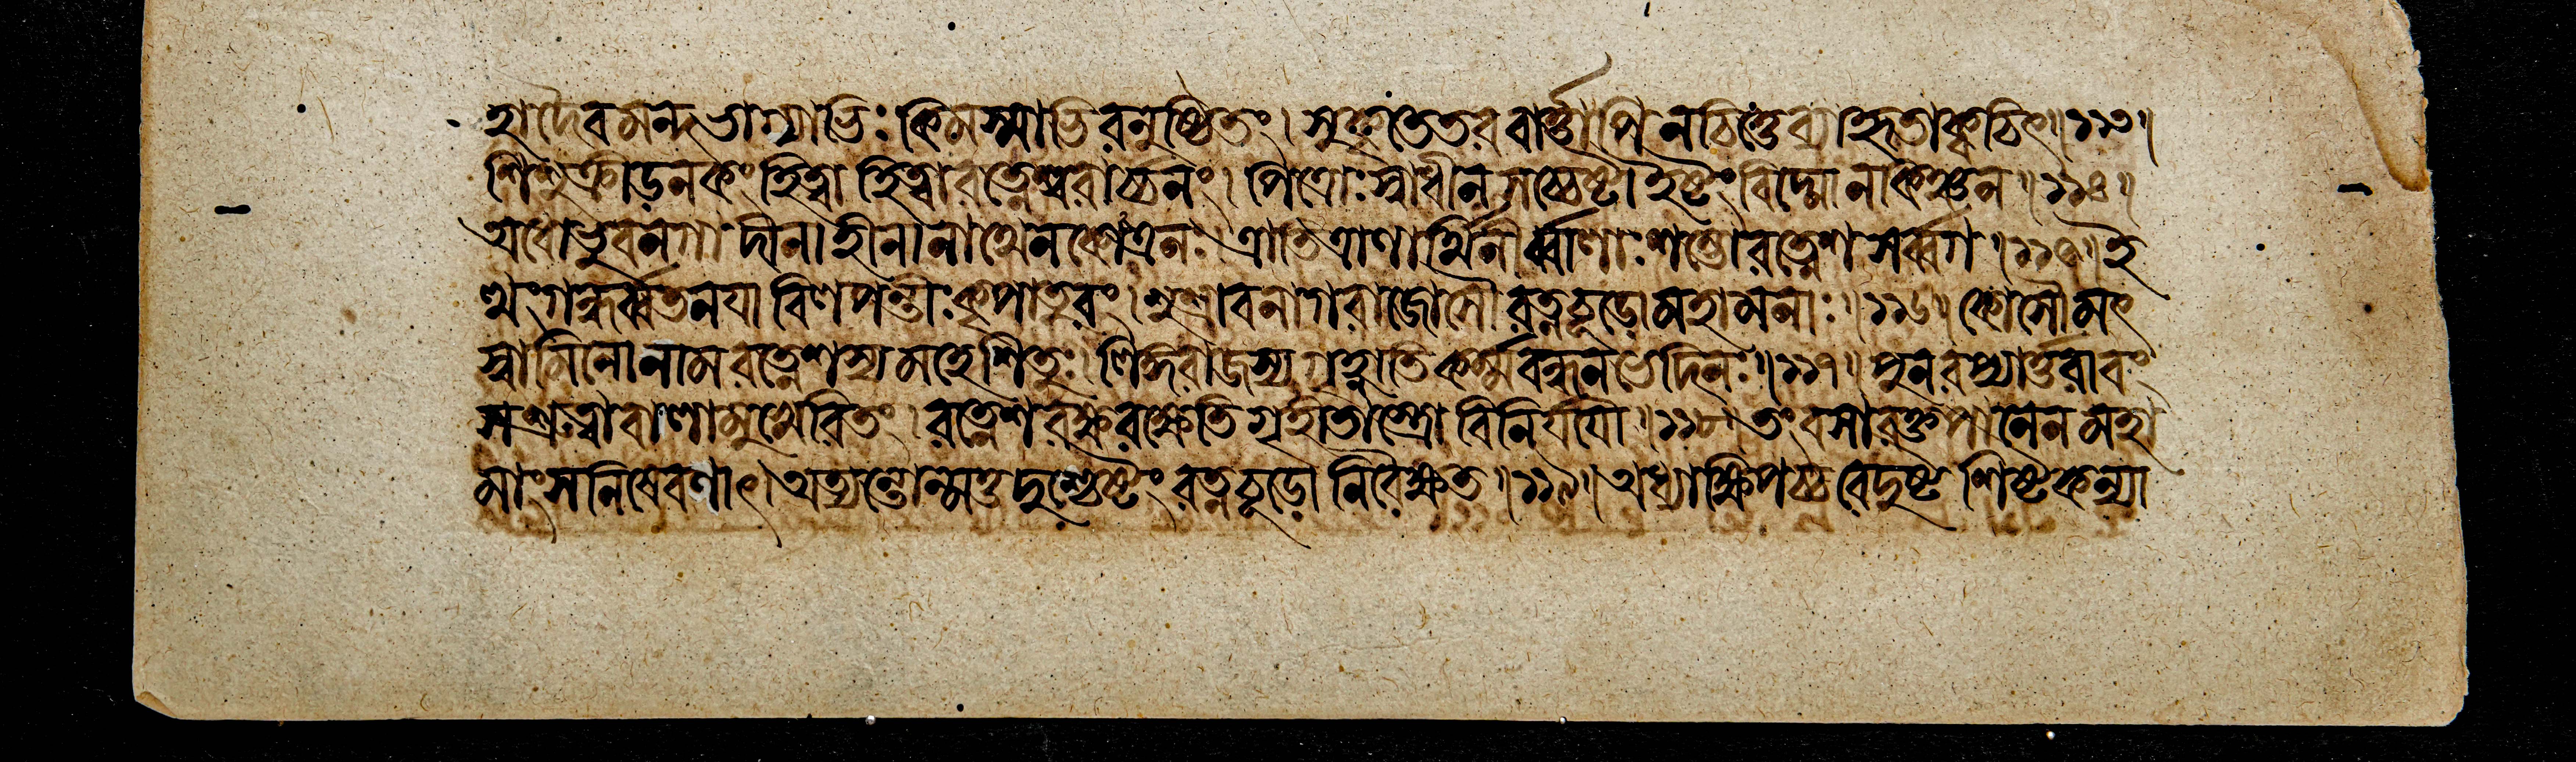 হা দৈব মন্দভাগ্যাভিঃ কিমস্মাভিরনুষ্ঠিতং। সুকৃতেতরবার্ত্তাপি ন চিত্তে ব্যাহৃতা ক্বচিৎ॥১১৩॥
শিশুক্রীড়নকং হিত্বা হিত্বা রত্নেশ্বরার্চ্চনং। পিত্রোঃ স্বাধীনগচ্চেষ্টা হষ্টং বিদ্মো ন কিঞ্চন॥১১৪॥
অধোভুবনগা দীনা হীনা নাথেন কেনচিৎ। ত্রাহি ত্রাণার্থিনীর্ব্বাণাঃ শম্ভো রত্নেশ সর্ব্বগ॥১১৫॥ ই
ত্থং গন্ধর্ব্বতনযা বিলপন্তীঃ কৃপাতুরং। শুশ্রাব নাগরাজোসৌ রত্নচূড়ো মহামনাঃ॥১১৬॥ কোসৌ মৎ
স্বামিনো নাম রত্নেশস্য মহেশিতুঃ। লিঙ্গরাজস্য গৃহ্ণাতি কর্ম্মবন্ধনভেদিনঃ॥১১৭॥ পুনরপ্যার্ত্তরাবং
স শ্রুত্বা বাণামুখেরিতং। রত্নেশ রক্ষ রক্ষেতি গৃহীতাস্ত্রো বিনির্যযৌ॥১১৮॥ তং বসারক্তপানেন মহা
মাংসনিষেবণাৎ। অত্যন্তোন্মত্তদুশ্চেষ্টং রত্নচূড়ো নিরৈক্ষত॥১১৯॥ অধ্যাক্ষিপচ্চ রে দুষ্ট শিষ্টকন্যা